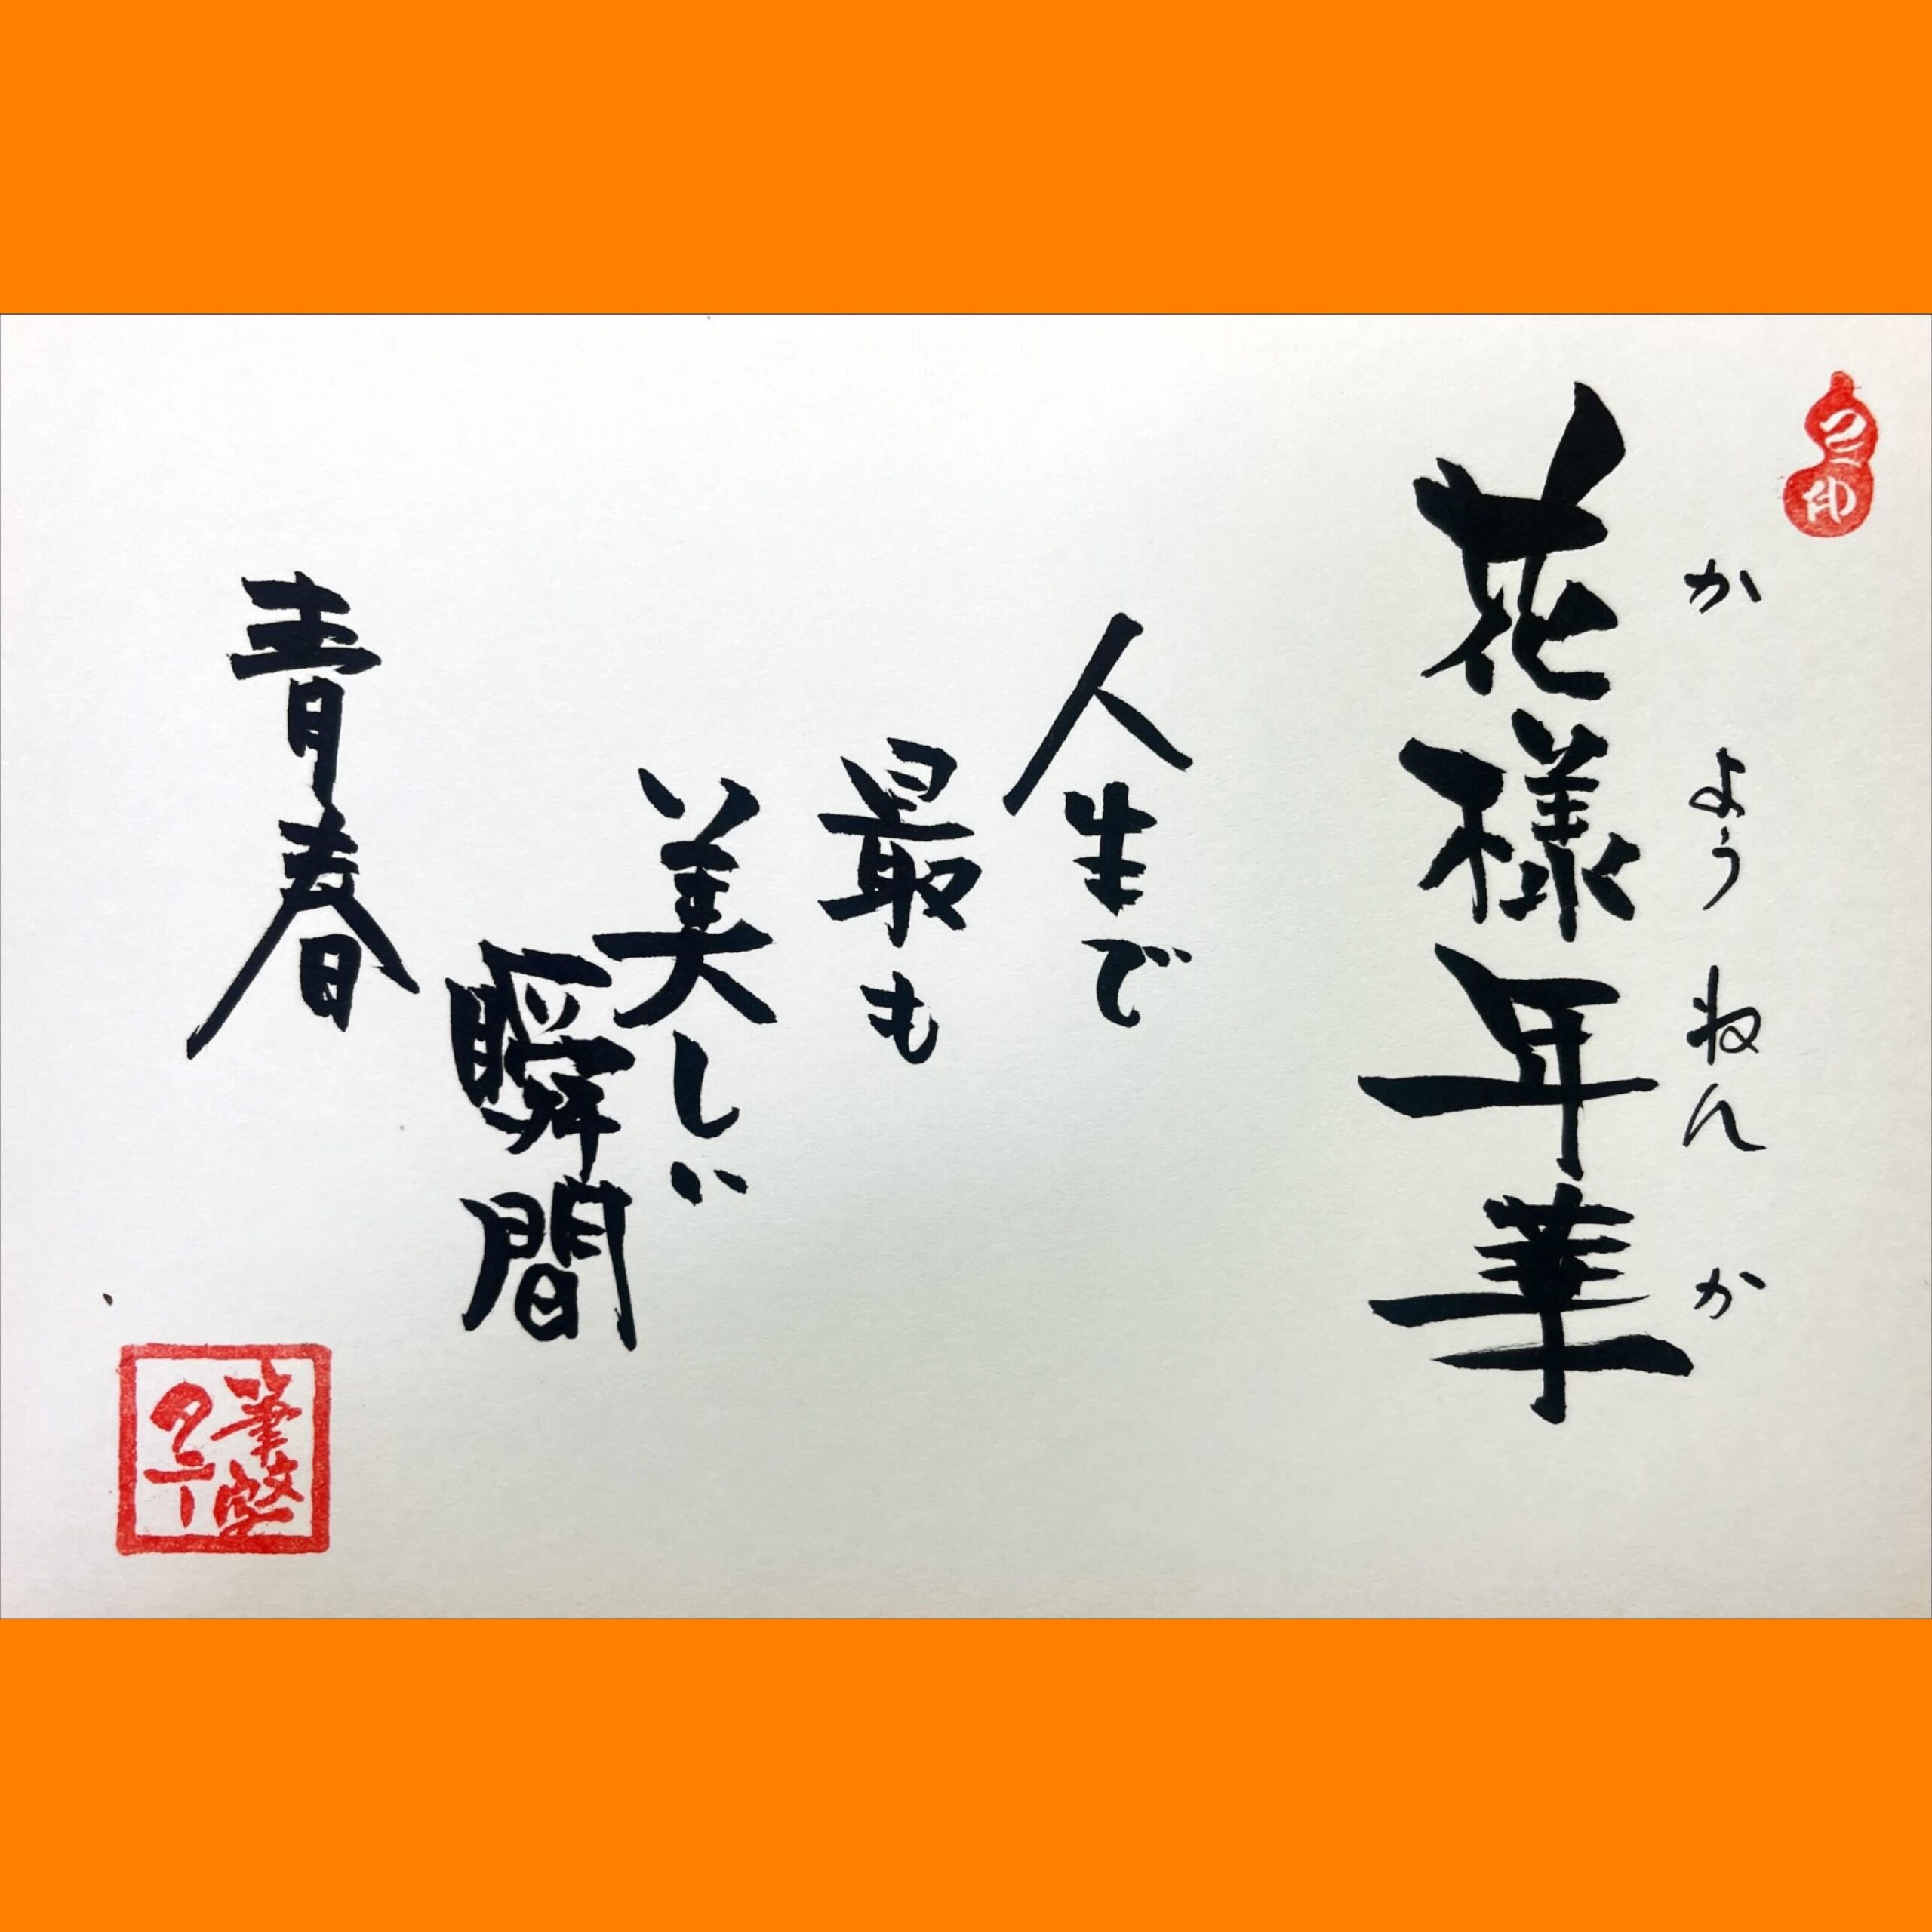 花様年華
かようねんか
人生で
最も
美しい
瞬間
青春
筆整
タニ一